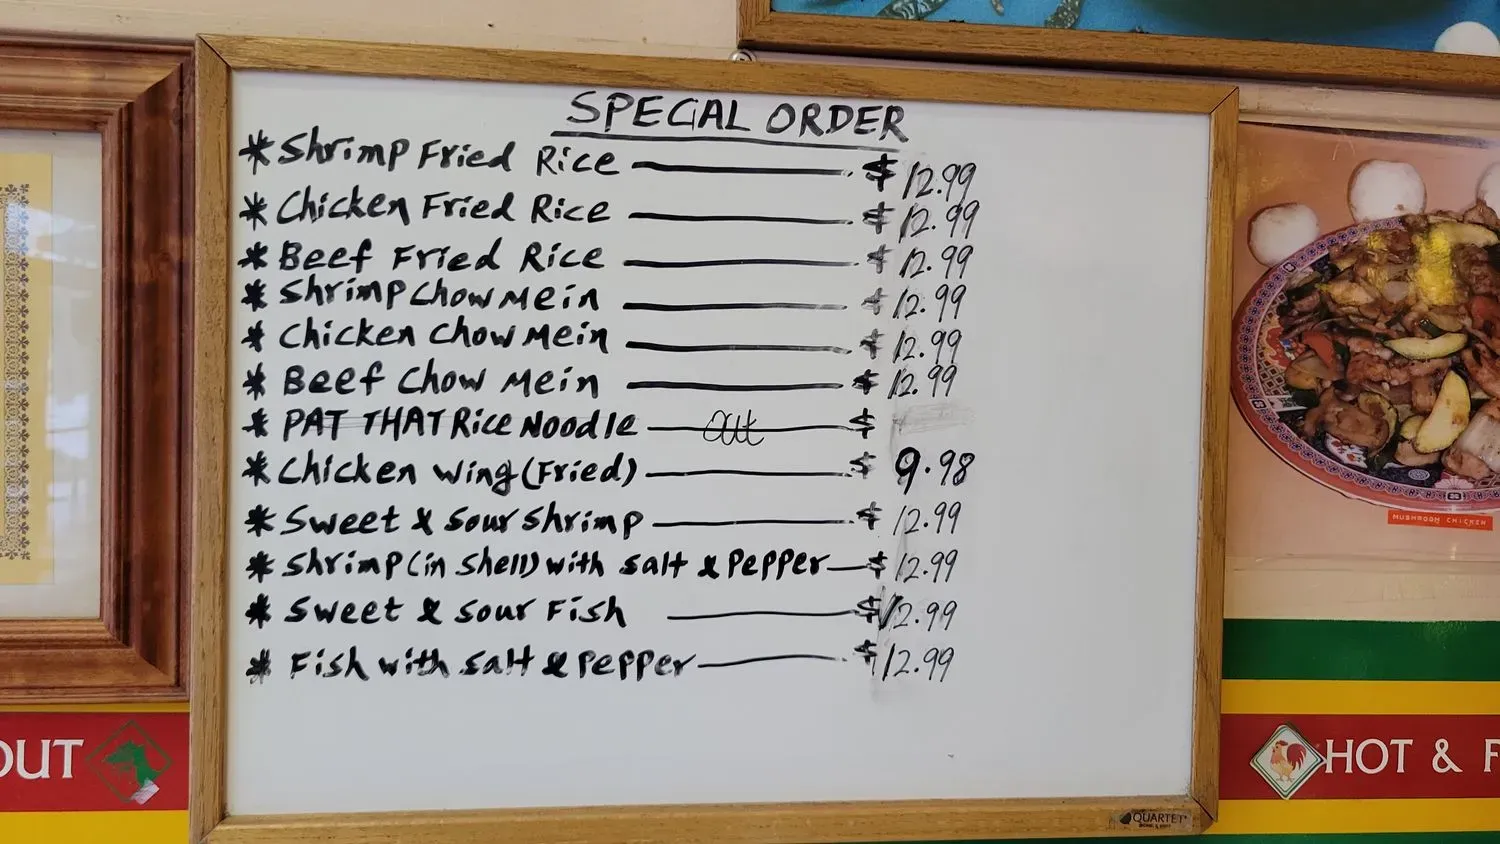 SPECIAL ORDER
* Shrimp Fried Rice $ 12.99
* Chicken Fried Rice $ 12.99
* Beef Fried Rice $ 12.99
* Shrimp Chow Mein $ 12.99
* Chicken Chow Mein $ 12.99
* Beef Chow Mein $ 12.99
* PAT THAT Rice Noodle out $
* Chicken Wing (Fried) $ 9.98
* Sweet & Sour Shrimp $ 12.99
* Shrimp (in Shell) with Salt & Pepper $ 12.99
* Sweet & Sour Fish $ 12.99
* Fish with Salt & Pepper $ 12.99
MUSHROOM CHICKEN
OUT
HOT & F
QUARTET